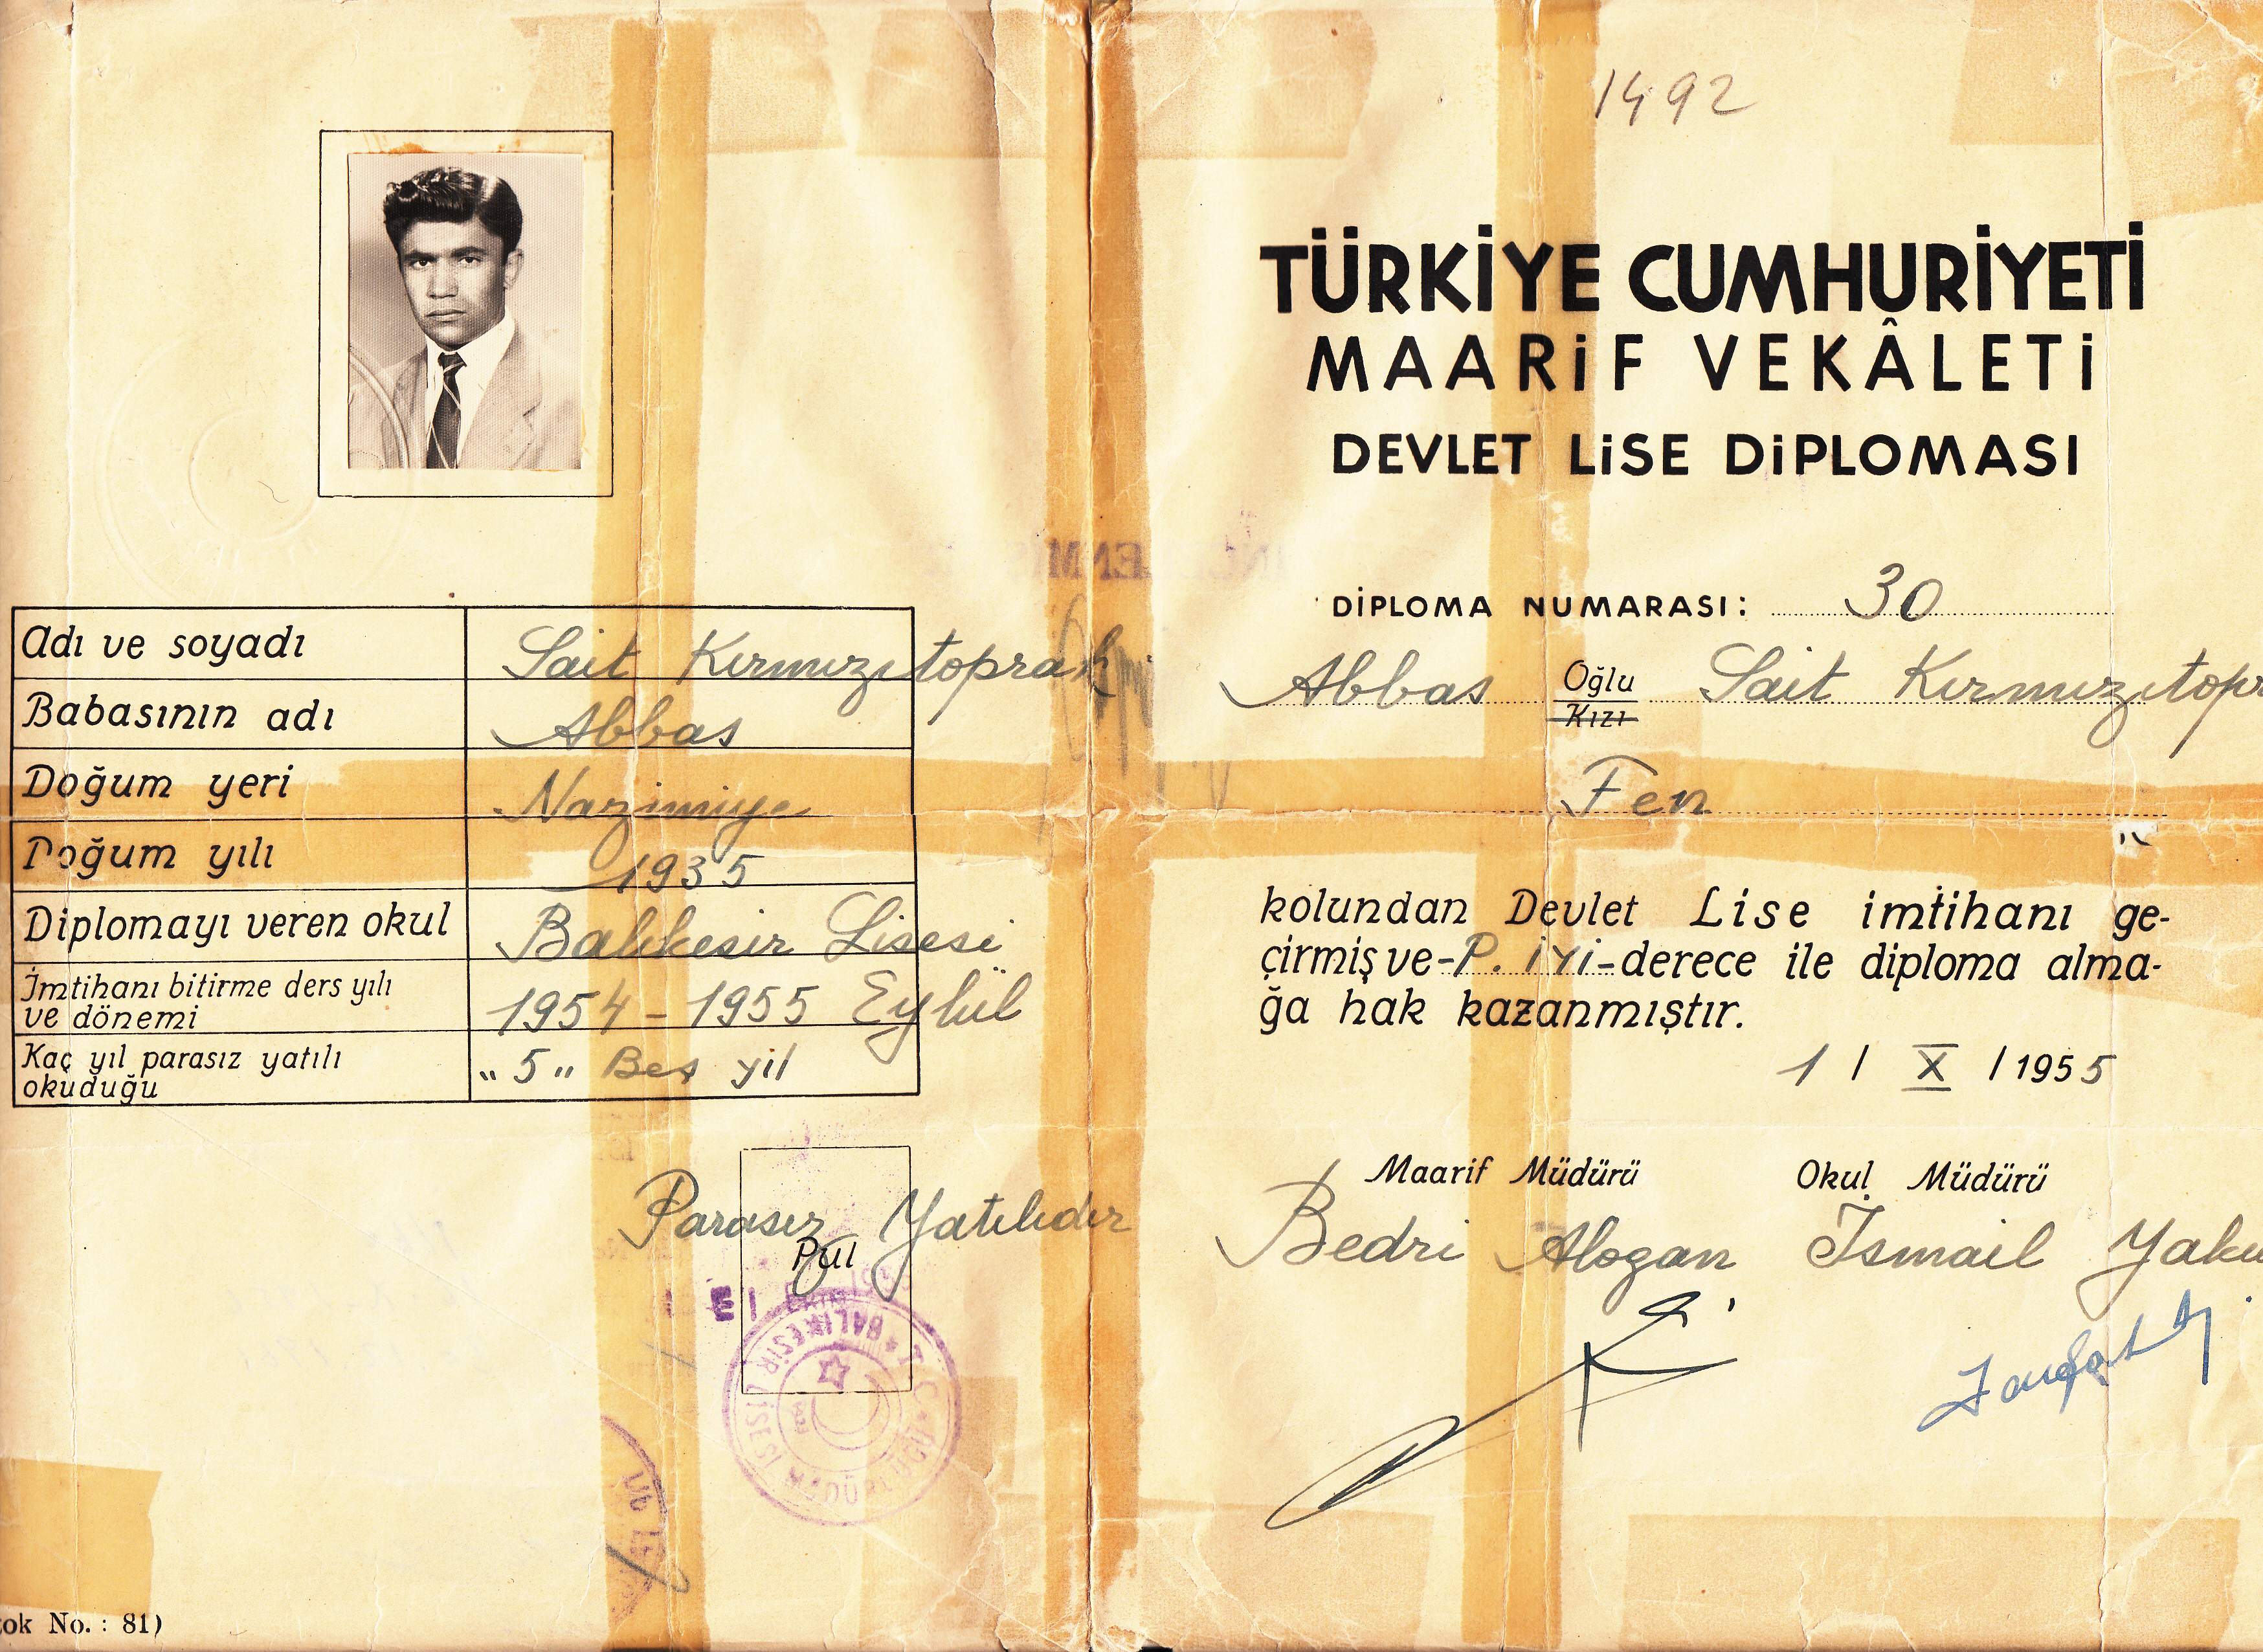 Adı ve soyadı Sait Kırmızıtoprak
Babasının adı Abbas
Doğum yeri Nazimiye
Doğum yılı 1935
Diplomayı veren okul Balıkesir Lisesi
İmtihanı bitirme ders yılı
ve dönemi 1954 - 1955 Eylül
Kaç yıl parasız yatılı
okuduğu "5" Beş yıl
Parasız Yatılıdır
Pul
T.C. BALIKESİR LİSESİ MÜDÜRLÜĞÜ
ok No. : 81)
1492
TÜRKİYE CUMHURİYETİ
MAARiF VEKÂLETi
DEVLET LiSE DiPLOMASI
DİPLOMA NUMARASI: 30
Abbas Oğlu Sait Kırmızıtopr
Kızı
Fen
kolundan Devlet Lise imtihanı ge-
çirmiş ve -P. İYİ- derece ile diploma alma-
ğa hak kazanmıştır.
1 / X / 1955
Maarif Müdürü Okul Müdürü
Bedri Alogan İsmail Yaku